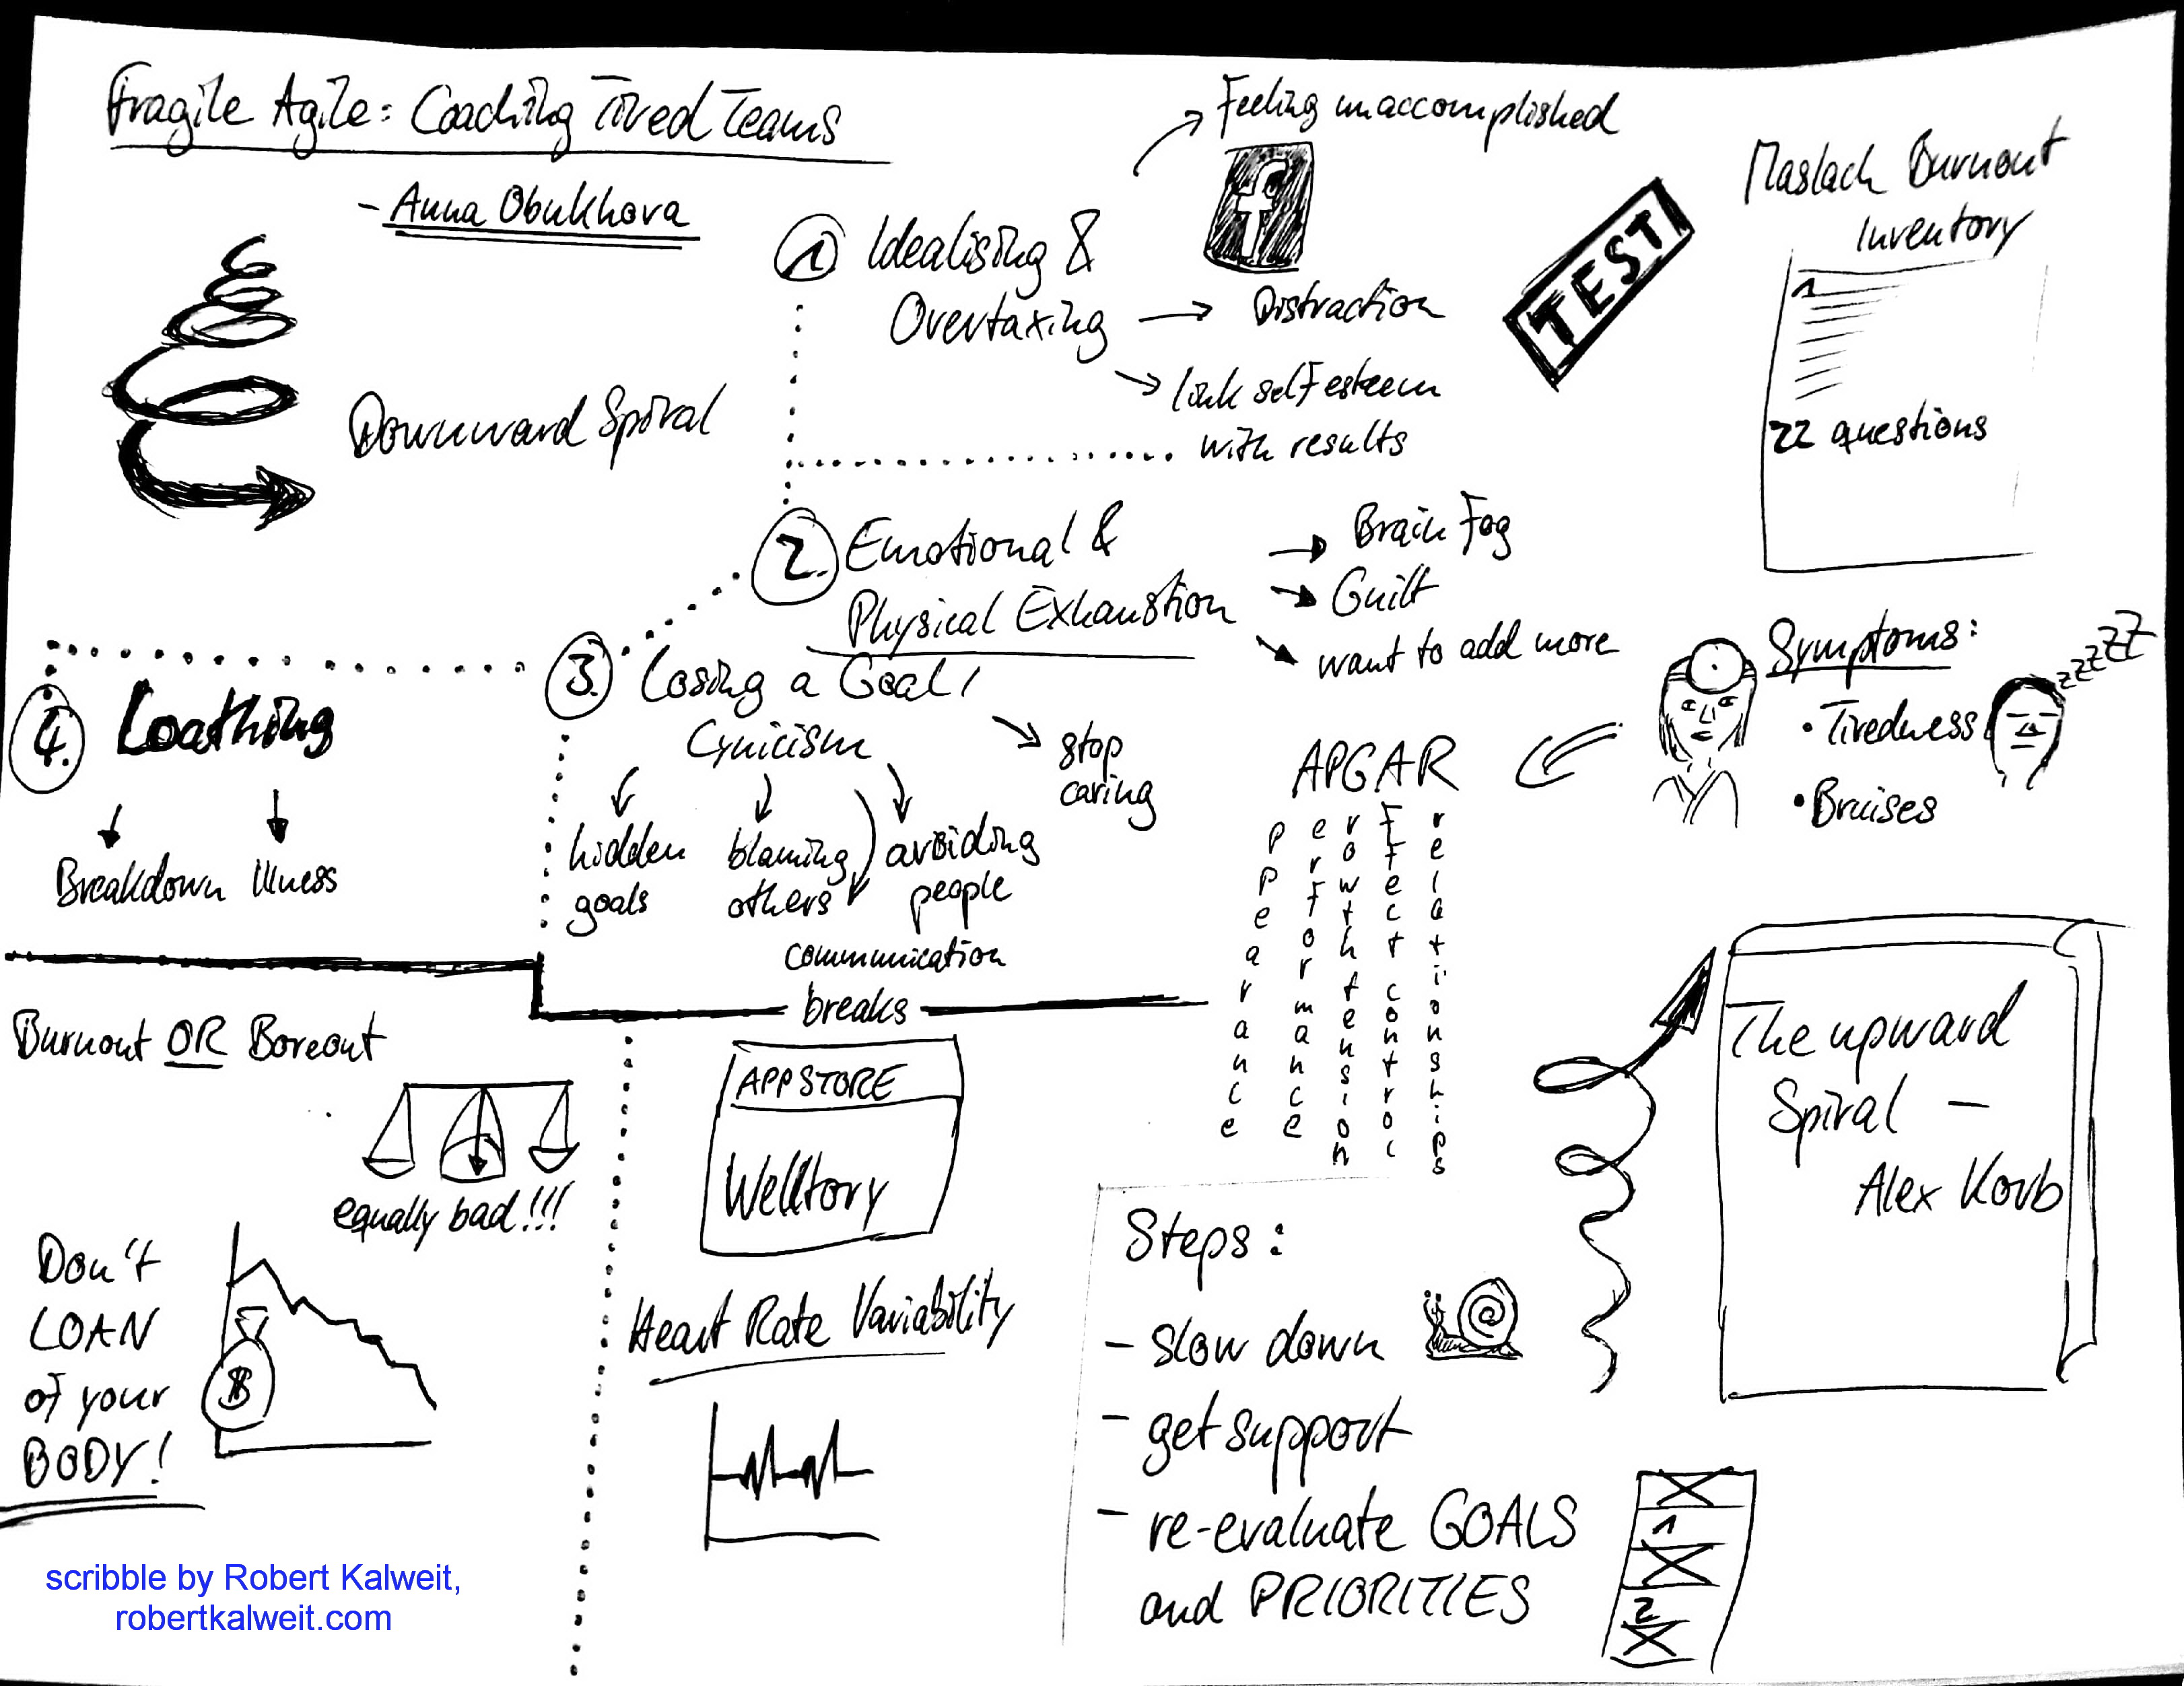 Fragile Agile: Coaching Tired Teams
- Anna Obukhova
Downward Spiral
1 Idealising &
Overtaxing
Feeling unaccomplished
f
Distraction
link self esteem
with results
TEST
Maslach Burnout
Inventory
1
22 questions
2. Emotional &
Physical Exhaustion
Brain Fog
Guilt
want to add more
3. Losing a Goal /
Cynicism
stop
caring
hidden
goals
blaming
others
avoiding
people
communication
breaks
4. Loathing
Breakdown
Illness
Symptoms:
• Tiredness
• Bruises
zzzzZZ
APGAR
ppearance
erformance
rowth tension
ffect control
relationships
Burnout OR Boreout
equally bad!!!
Don't
LOAN
of your
BODY!
$
APPSTORE
Welltory
Heart Rate Variability
Steps:
- slow down
- get support
- re-evaluate GOALS
and PRIORITIES
1
2
The upward
Spiral -
Alex Korb
scribble by Robert Kalweit,
robertkalweit.com